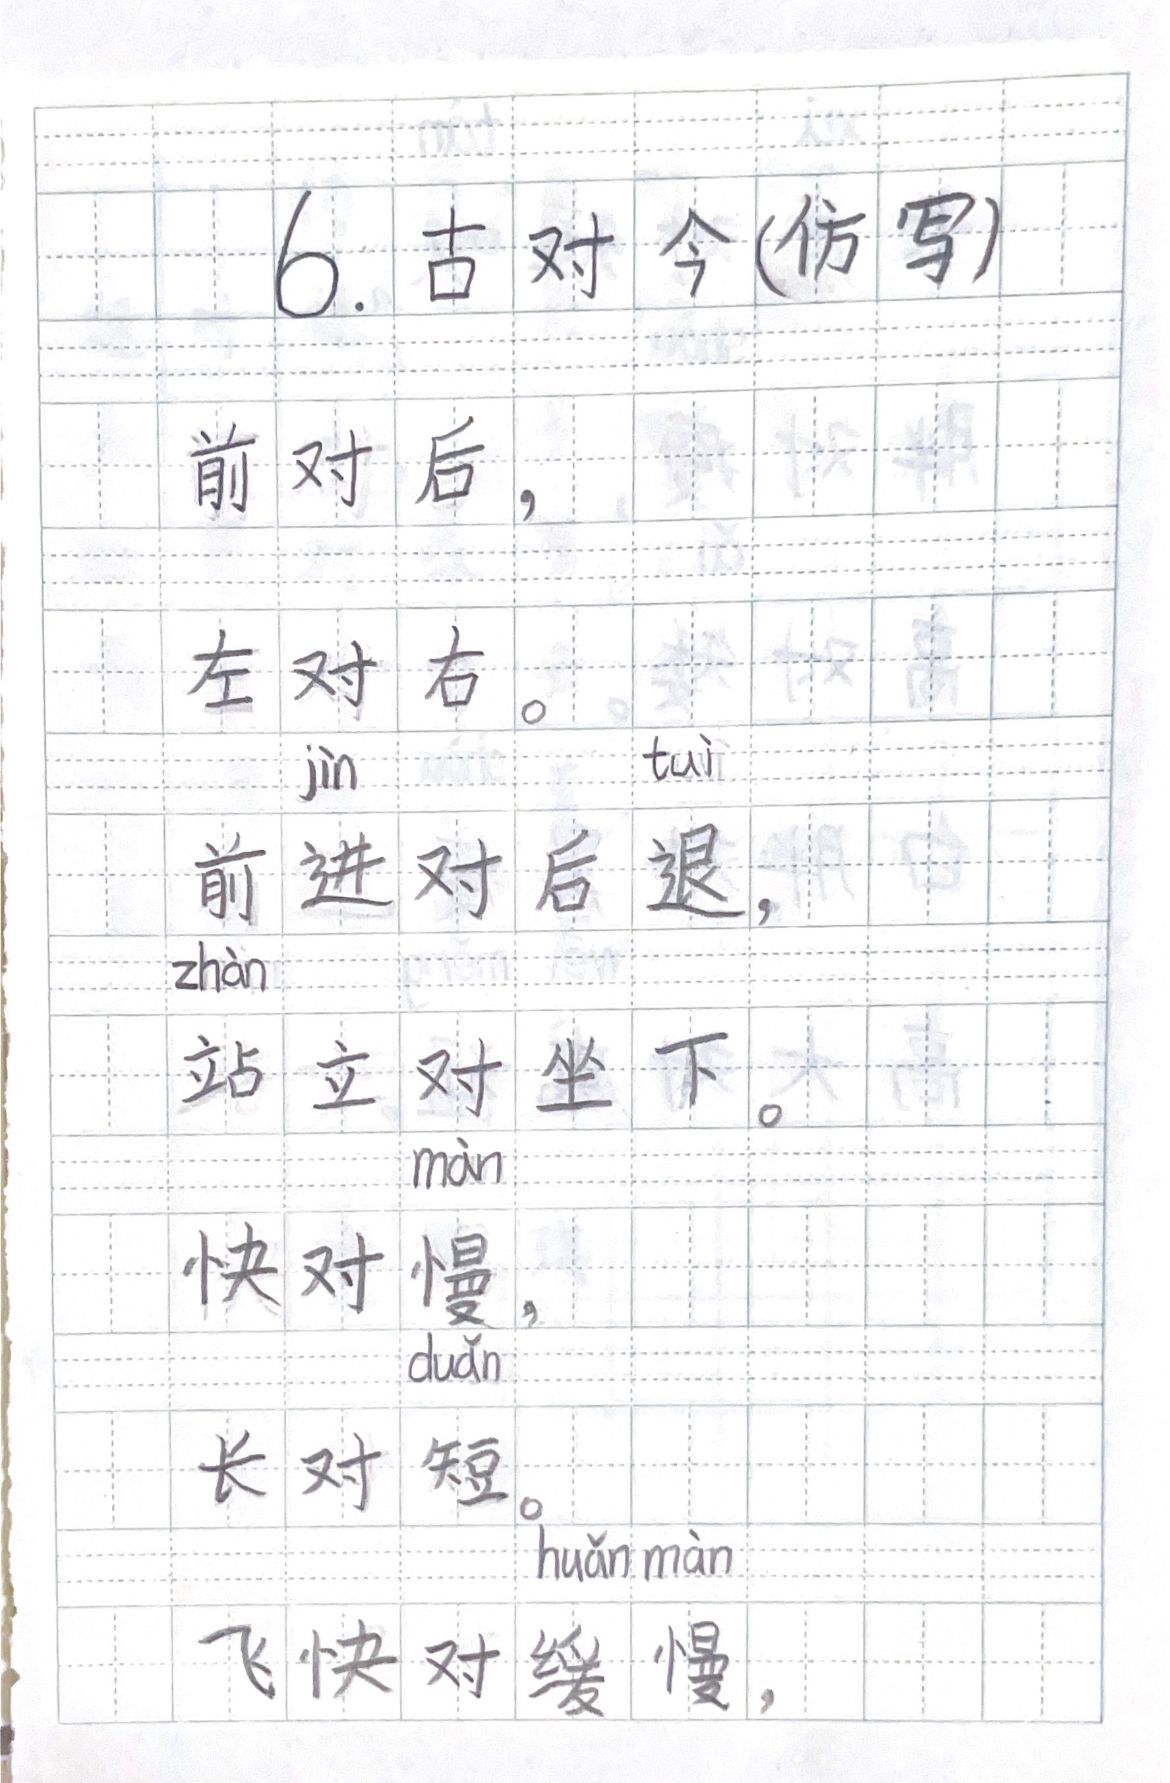 6.古对今(仿写)
前对后，
左对右。
jìn tuì
前进对后退，
zhàn
站立对坐下。
màn
快对慢，
duǎn
长对短。
huǎn màn
飞快对缓慢，